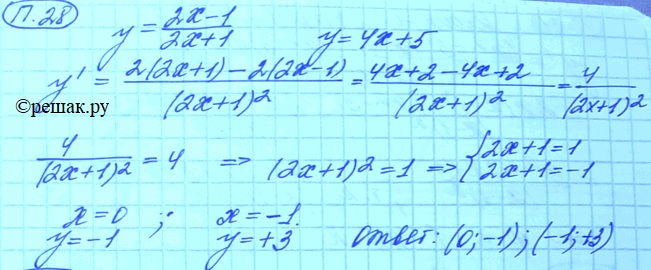 П.28
y = (2x-1)/(2x+1)    y = 4x+5
y' = (2(2x+1) - 2(2x-1))/(2x+1)² = (4x+2-4x+2)/(2x+1)² = 4/(2x+1)²
©решак.ру
4/(2x+1)² = 4 => (2x+1)² = 1 => { 2x+1=1
2x+1=-1
x=0 ; x=-1.
y=-1    y=+3    Ответ: (0;-1);(-1;+3)